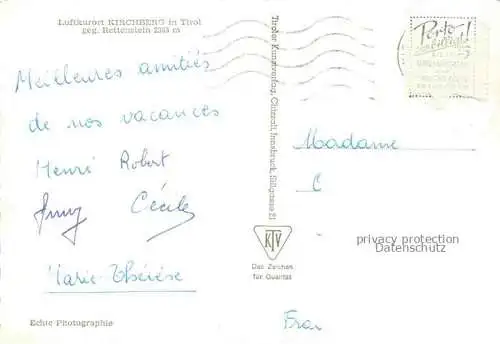 Luftkurort KIRCHBERG in Tirol
geg. Rettenstein 2363 m
Meilleures amitiés
de nos vacances
Henri Robert
Cécile
Marie-Thérèse
Echte Photographie
Tiroler Kunstverlag, Chizzali, Innsbruck, Sillgasse 21
KTV
Das Zeichen
für Qualität
Porto
Madame
C
privacy protection
Datenschutz
Fran